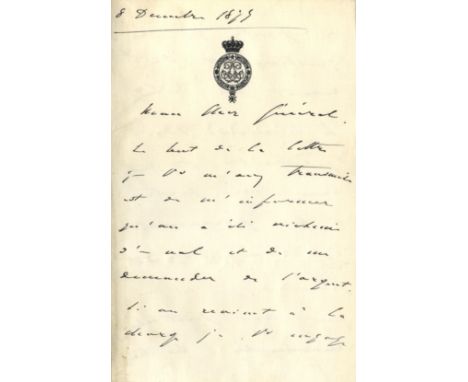 8 Decembre 1879
Mon cher Général.
Le but de la lettre
q– Vs m'avez transmise
est de m'informer
qu'on a été
d'– mal et de me
demander de l'argent.
Si on revient à la
charge je Vs engage